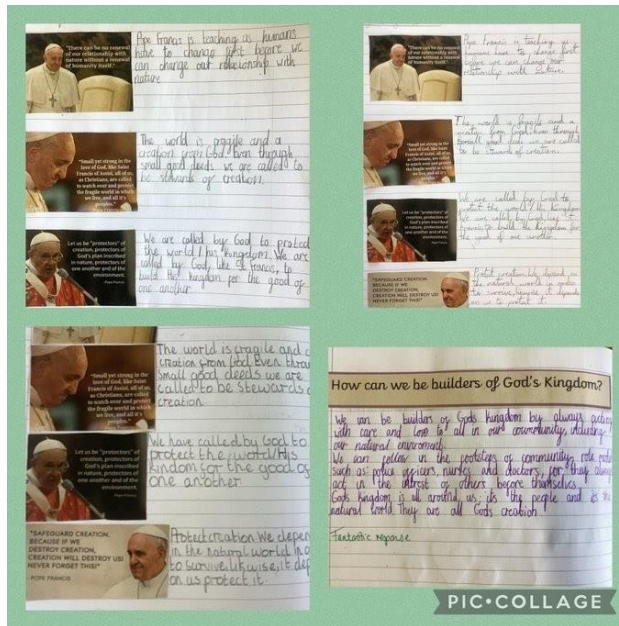 "There can be no renewal
of our relationship with
nature without a renewal
of humanity itself."
Pope Francis is teaching as humans
have to change first before we
can change our relationship with
nature
"Small yet strong in the
love of God, like Saint
Francis of Assisi, all of us,
as Christians, are called
to watch over and protect
the fragile world in which
we live, and all it's
peoples."
The world is fragile and a
creation from God. Even through
small good deeds we are called to
be stewards of creation.
Let us be "protectors" of
creation, protectors of
God's plan inscribed
in nature, protectors of
one another and of the
environment.
Pope Francis
We are called by God to protect
the world / his Kingdom. We are
called by God, like st francis, to
build the kingdom for the good of
one another
"There can be no renewal
of our relationship with
nature without a renewal
of humanity itself."
Pope Francis is teaching as
humans have to change first
before we can change our
relationship with nature.
"Small yet strong in the
love of God, like Saint
Francis of Assisi, all of us,
as Christians, are called
to watch over and protect
the fragile world in which
we live, and all it's
peoples."
The world is fragile and a
creation from God. Even through
small good deeds we are called
to be stewards of creation.
Let us be "protectors" of
creation, protectors of
God's plan inscribed
in nature, protectors of
one another and of the
environment.
Pope Francis
We are called by God to
protect the world / his Kingdom
We are called by God, like st
francis to build the kingdom for
the good of one another.
"SAFEGUARD CREATION.
BECAUSE IF WE
DESTROY CREATION,
CREATION WILL DESTROY US!
NEVER FORGET THIS!"
Protect creation. We depend on
the natural world in order
to survive, likewise it depends
on us to protect it.
"Small yet strong in the
love of God, like Saint
Francis of Assisi, all of us,
as Christians, are called
to watch over and protect
the fragile world in which
we live, and all it's
peoples."
The world is fragile and a
creation from God. Even throu
small good deeds we are
called to be stewards o
creation
Let us be "protectors" of
creation, protectors of
God's plan inscribed
in nature, protectors of
one another and of the
environment.
Pope Francis
We have called by God to
protect the world/His
kindom for the good of
one another
"SAFEGUARD CREATION.
BECAUSE IF WE
DESTROY CREATION,
CREATION WILL DESTROY US!
NEVER FORGET THIS!"
- POPE FRANCIS
Protect creation. We depen
in the natural world in o
to survive, likwise, it dep
on us protect it.
How can we be builders of God's Kingdom?
We can be builders of Gods kingdom by always acting
with care and love to all in our community, including
our natural enviroment.
We can follow in the footsteps of community role models
such as police officers, nurses and doctors, for they always
act in the intrest of others before themselves.
Gods kingdom is all around us; its the people and its the
natural world. They are all Gods creation
Fantastic response
PIC•COLLAGE